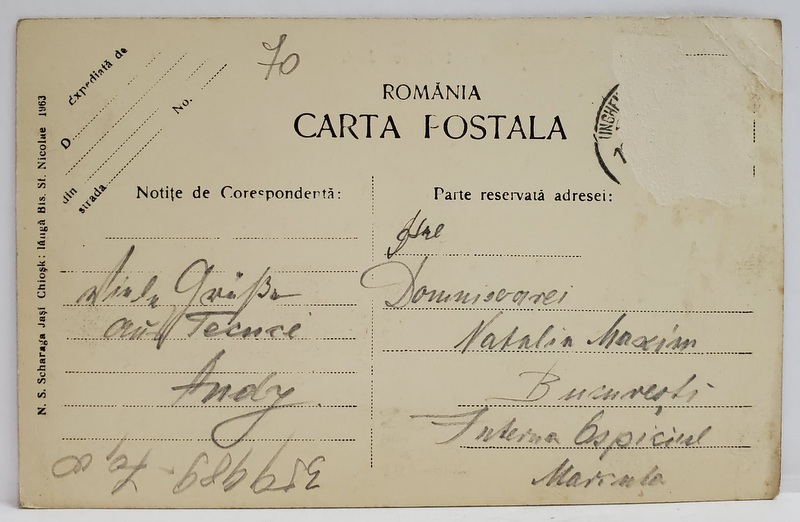 70
Expediată de
D
No.
din
strada
ROMĂNIA
CARTA POSTALA
UNGHE
Notițe de Corespondentă:
Parte reservată adresei:
N. S. Scharaga Jași Chioșk: lângă Bis. St. Nicolae 1963
Viele Grüße
aus Tecuci
Andy
Domnisoarei
Natalia Maxim
București
Interna Ospiciul
Marcuța